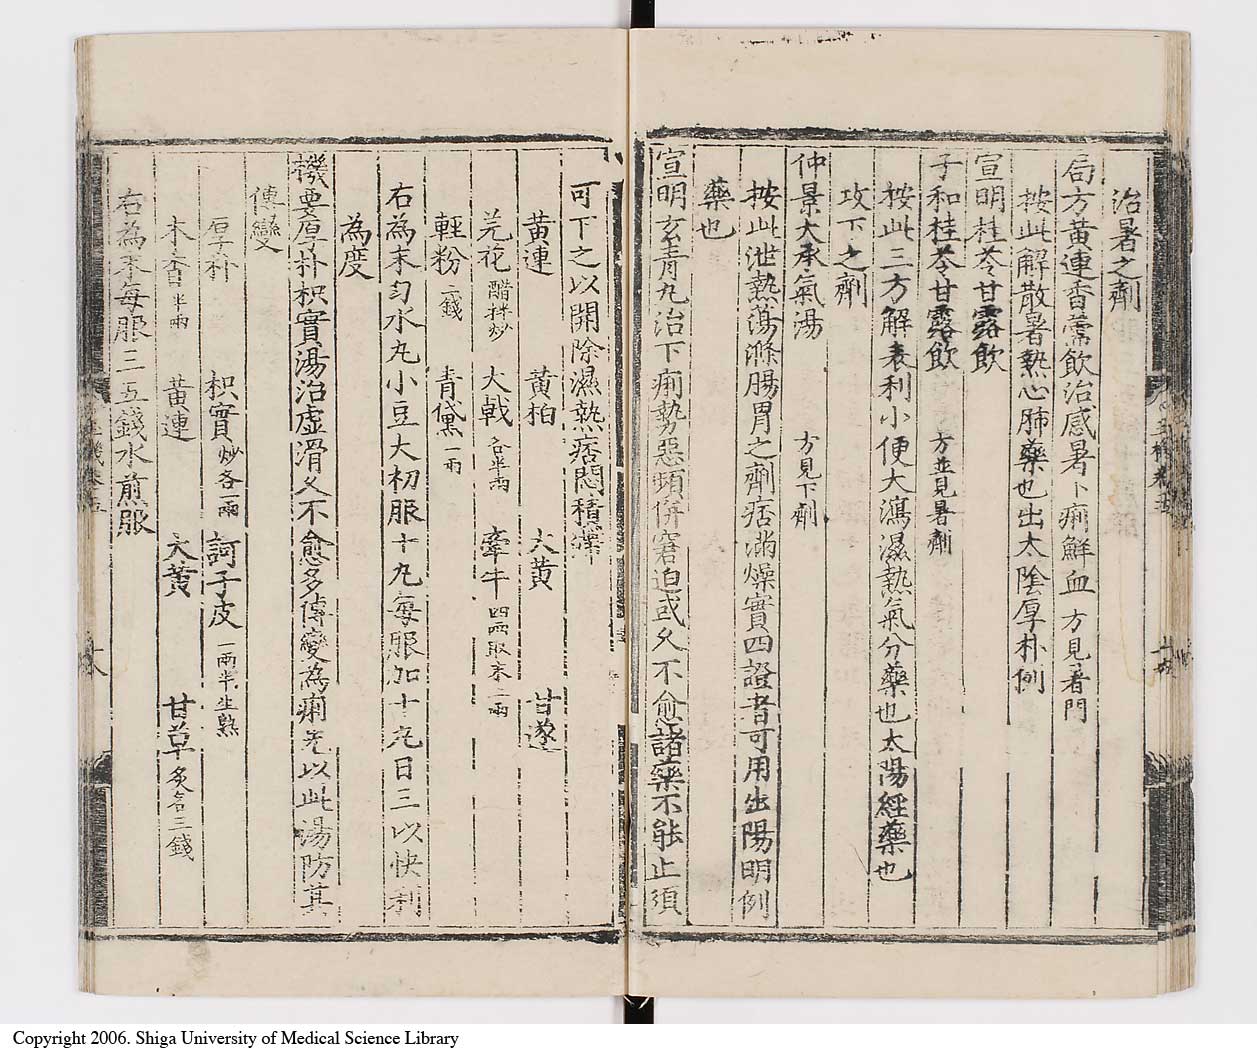 治暑之劑
局方黃連香薷飲治感暑下痢鮮血 方見暑門
按此解散暑熱心肺藥也出太陰厚朴例
宣明桂苓甘露飲
子和桂苓甘露飲 方並見暑劑
按此三方解表利小便大瀉濕熱氣分藥也太陽經藥也
攻下之劑
仲景大承氣湯 方見下劑
按此泄熱蕩滌腸胃之劑痞滿燥實四證者可用出陽明例
藥也
宣明玄青丸治下痢勢惡頻併窘迫或久不愈諸藥不能止須
可下之以開除濕熱痞悶積滯
黃連 黃柏 大黃 甘遂
芫花 醋拌炒 大戟 各半兩 牽牛 四兩取末二兩
輕粉 二錢 青黛 一兩
右為末勻水丸小豆大初服十丸每服加十丸日三以快利
為度
機要厚朴枳實湯治虛滑久不愈多傳變為痢先以此湯防其
傳變
厚朴 枳實 炒各一兩 訶子皮 一兩半生熟
木香 半兩 黃連 大黃 甘草 炙各三錢
右為末每服三五錢水煎服
Copyright 2006. Shiga University of Medical Science Library